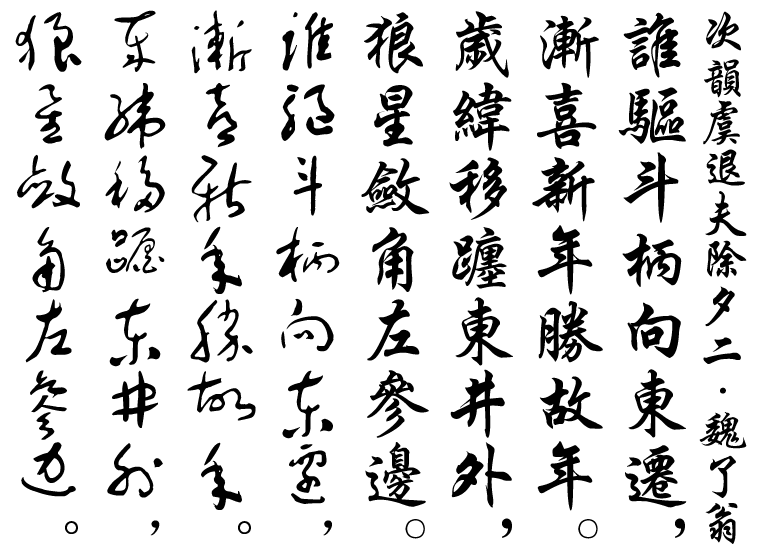 次韻虞退夫除夕二·魏了翁
誰驅斗柄向東遷，
漸喜新年勝故年。
歲緯移躔東井外，
狼星斂角左參邊。
誰驅斗柄向東遷，
漸喜新年勝故年。
歲緯移躔東井外，
狼星斂角左參邊。